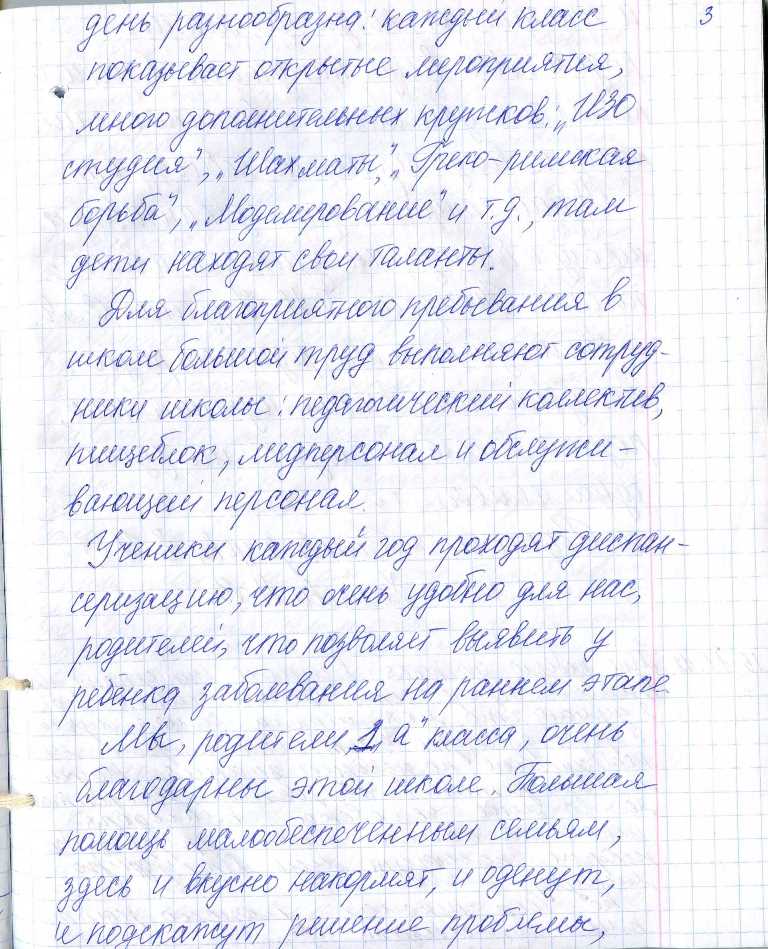 3
день разнообразна: каждый класс
показывает открытые мероприятия,
много дополнительных кружков: „ИЗО
студия", „Шахматы", „Греко-римская
борьба", „Моделирование" и т.д., там
дети находят свои таланты.
Для благоприятного пребывания в
школе большой труд выполняют сотруд-
ники школы: педагогический коллектив,
пищеблок, медперсонал и обслужи-
вающий персонал.
Ученики каждый год проходят диспан-
серизацию, что очень удобно для нас,
родителей, что позволяет выявить у
ребёнка заболевания на раннем этапе.
Мы, родители 1 „а" класса, очень
благодарны этой школе. Большая
помощь малообеспеченным семьям,
здесь и вкусно накормят, и оденут,
и подскажут решение проблемы,